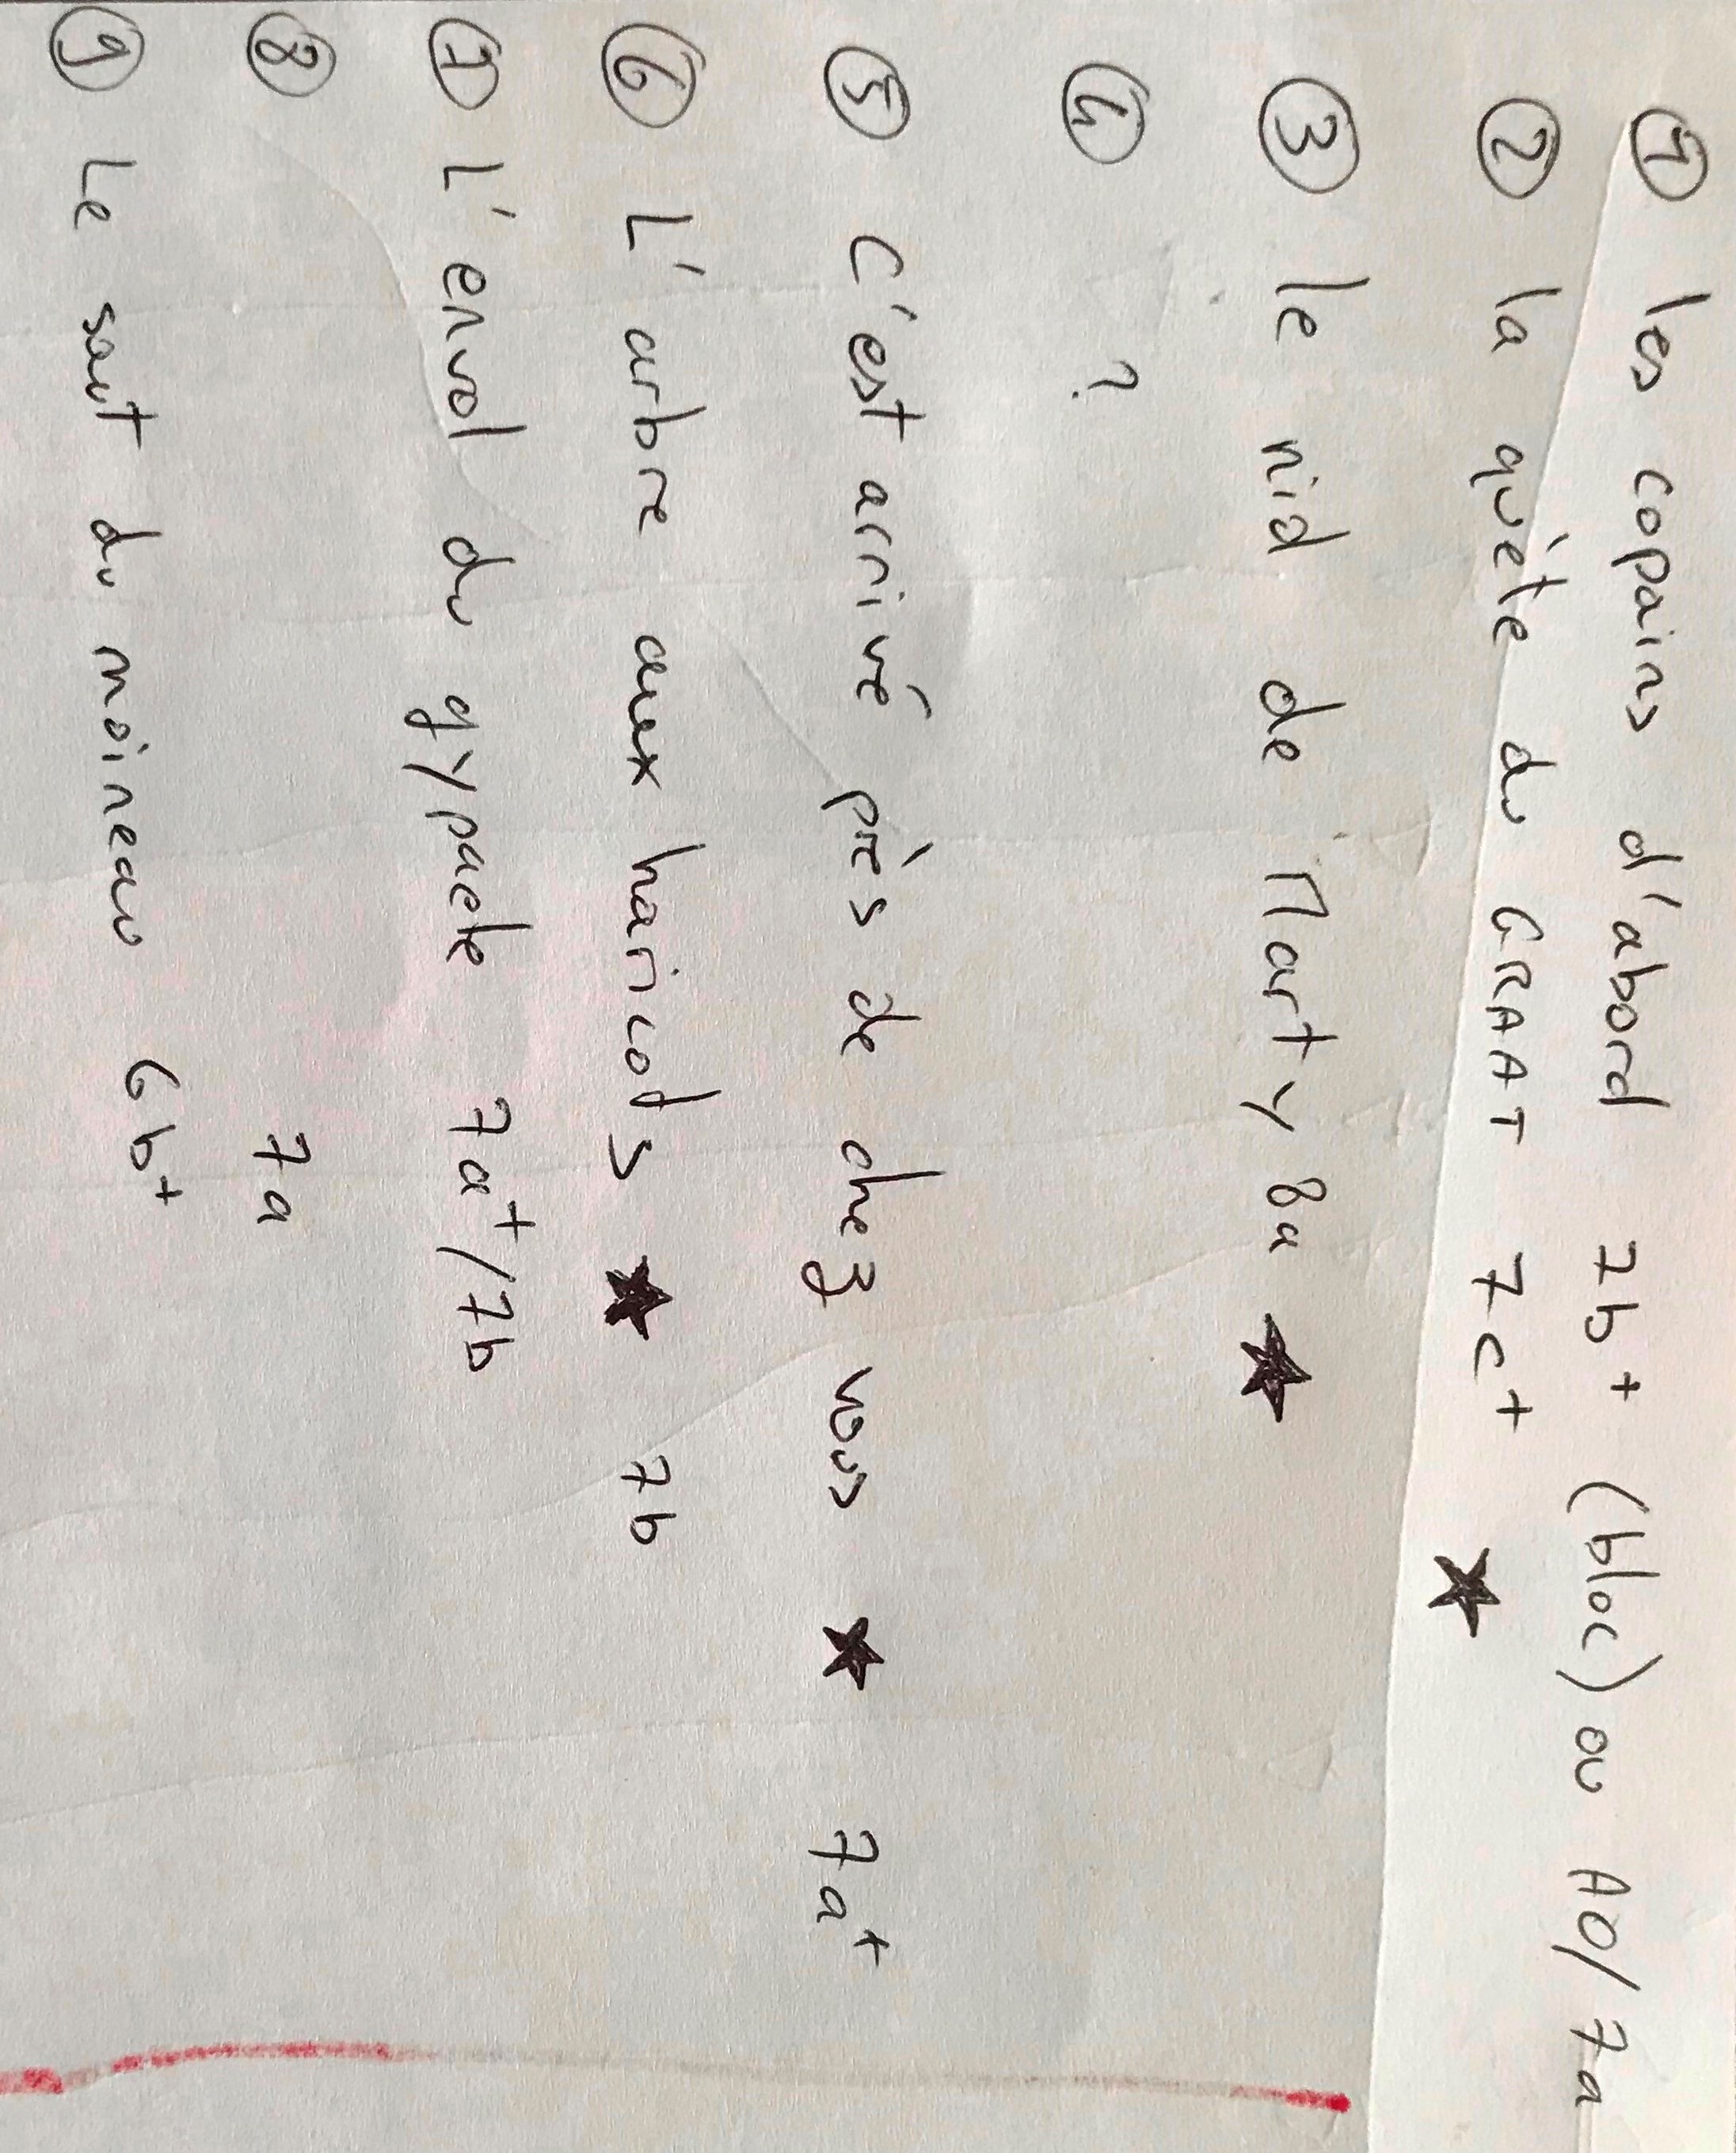 ① les copains d'abord 7b+ (bloc) ou A0/7a
② la quète du GRAAT 7c+ ★
③ le nid de Marty 8a ★
④ ?
⑤ C'est arrivé près de chez vous ★ 7a+
⑥ L'arbre aux haricots ★ 7b
⑦ L'envol du gypaete 7a+/7b
⑧ 7a
⑨ Le saut du moineau 6b+